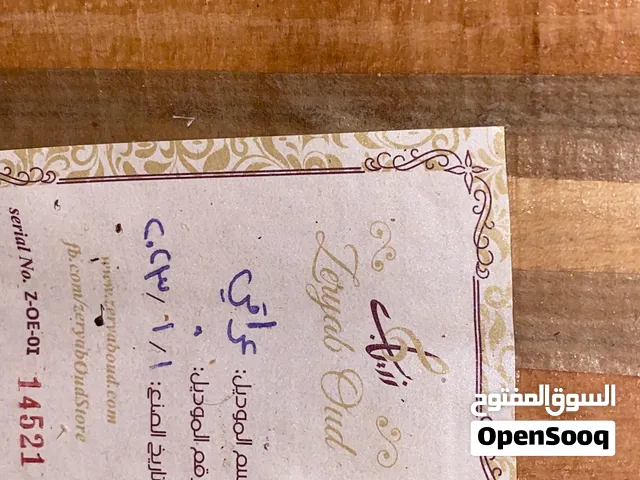 زرياب
Zeryab Oud
سم الموديل: عراقي
رقم الموديل:
تاريخ الصنع: ٢٠٢٣/٩/١
www.zeryaboud.com
fb.com/zeryabOudStore
serial No. Z-OE-01 14521
السوق المفتوح
OpenSooq